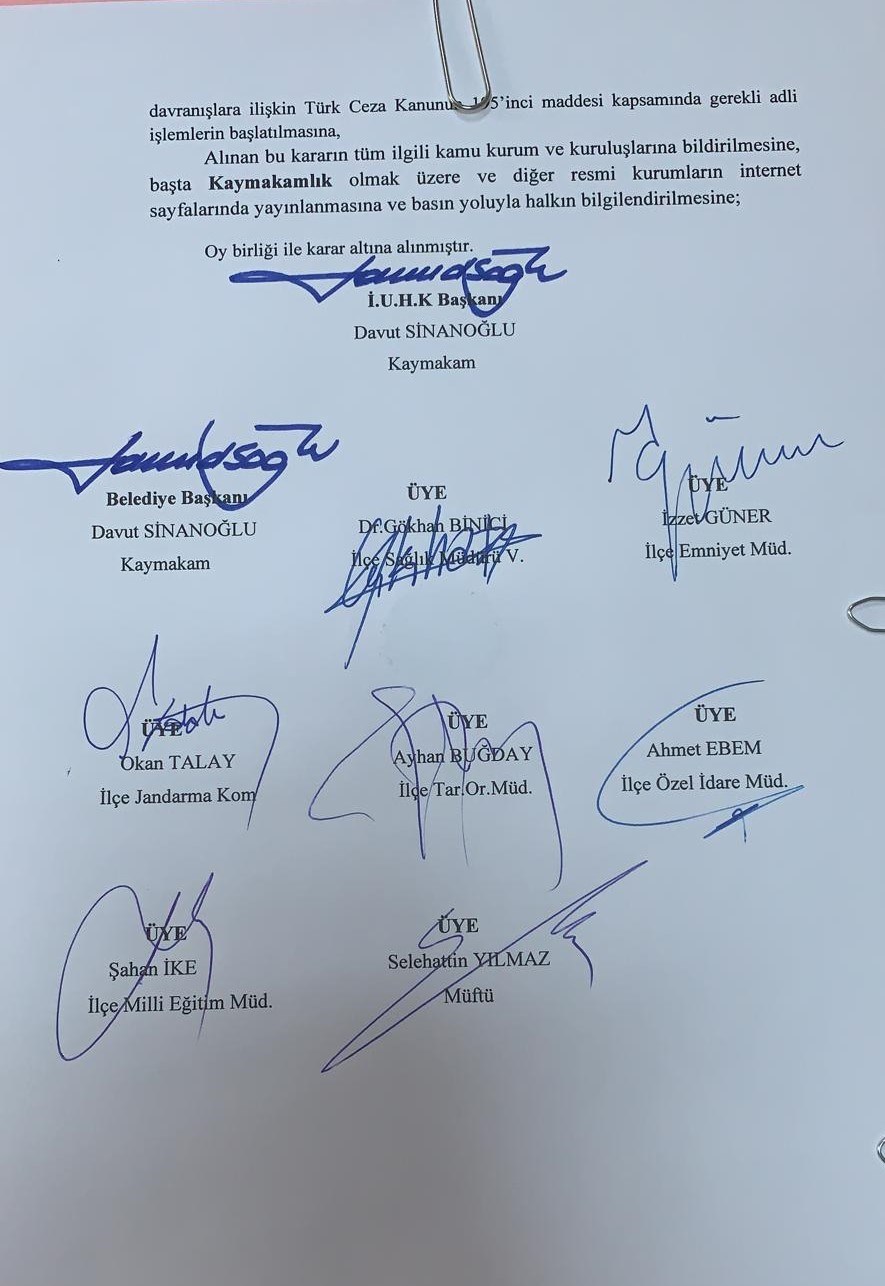 davranışlara ilişkin Türk Ceza Kanunun 195’inci maddesi kapsamında gerekli adli
işlemlerin başlatılmasına,
Alınan bu kararın tüm ilgili kamu kurum ve kuruluşlarına bildirilmesine,
başta Kaymakamlık olmak üzere ve diğer resmi kurumların internet
sayfalarında yayınlanmasına ve basın yoluyla halkın bilgilendirilmesine;
Oy birliği ile karar altına alınmıştır.
İ.U.H.K Başkanı
Davut SİNANOĞLU
Kaymakam
Belediye Başkanı
Davut SİNANOĞLU
Kaymakam
ÜYE
Dr.Gökhan BİNİCİ
İlçe Sağlık Müdürü V.
ÜYE
İzzet GÜNER
İlçe Emniyet Müd.
ÜYE
Okan TALAY
İlçe Jandarma Kom
ÜYE
Ayhan BUĞDAY
İlçe Tar.Or.Müd.
ÜYE
Ahmet EBEM
İlçe Özel İdare Müd.
ÜYE
Şahan İKE
İlçe Milli Eğitim Müd.
ÜYE
Selehattin YILMAZ
Müftü